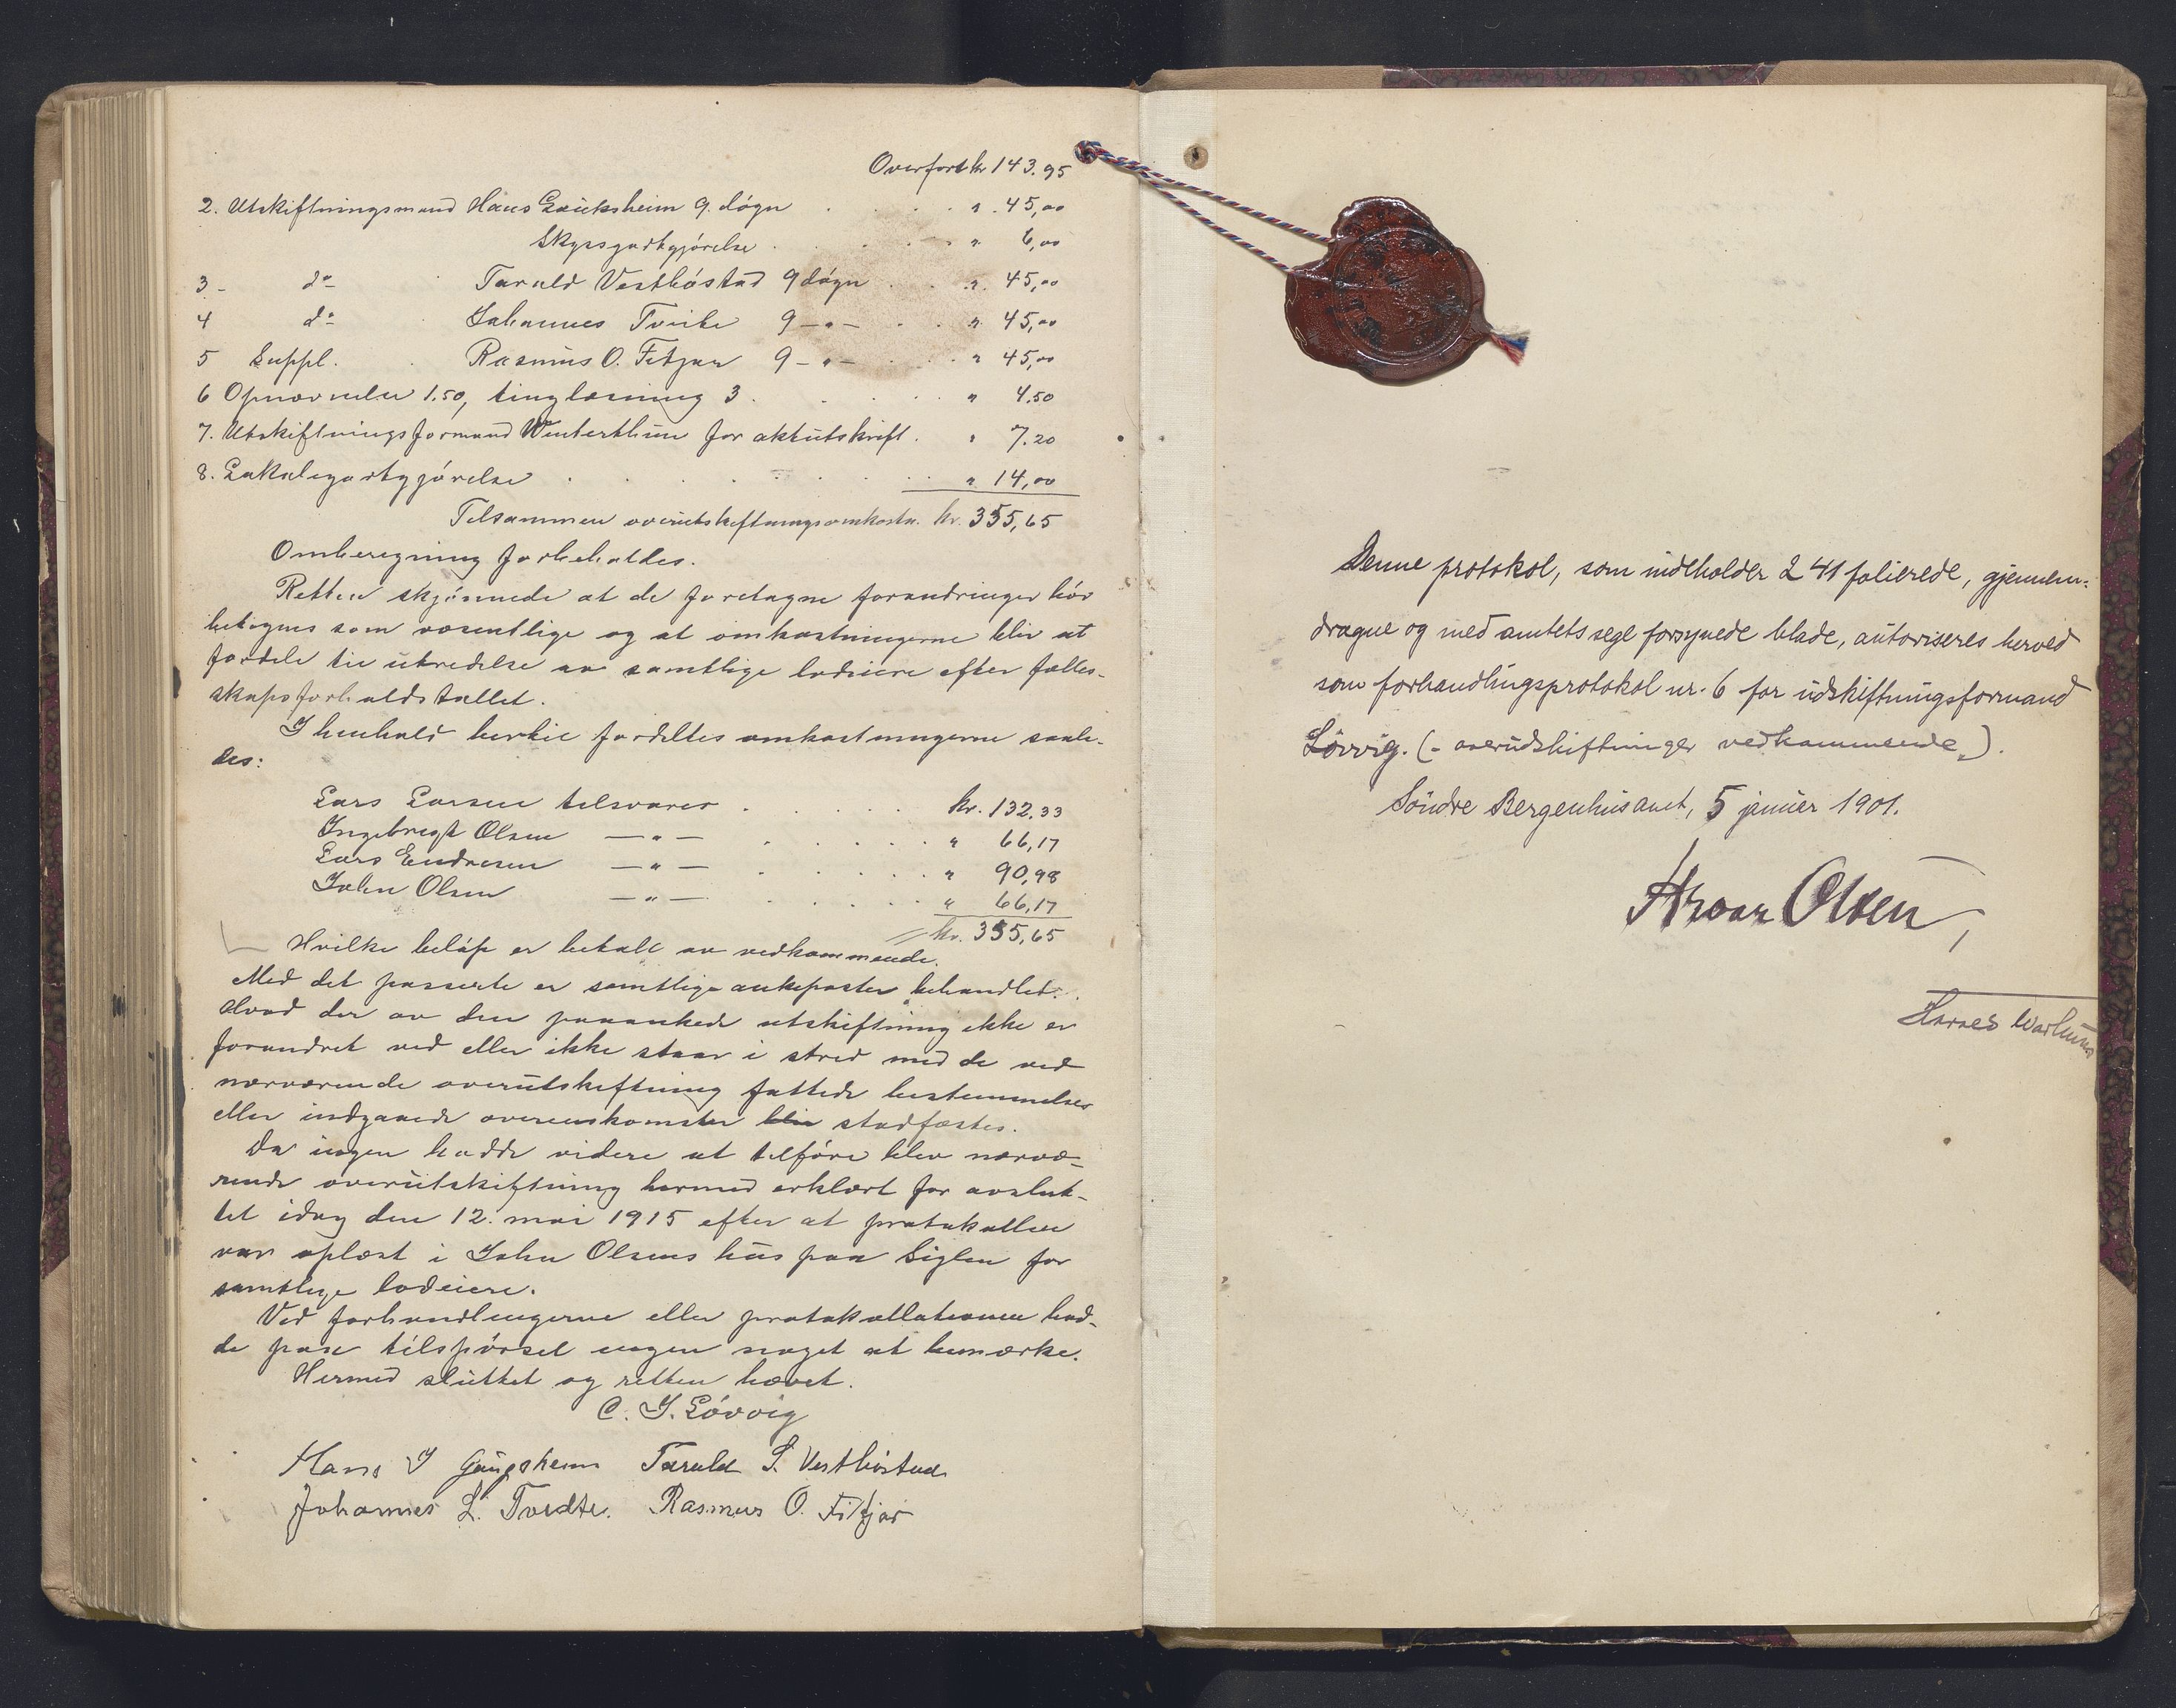 Overført kr 143.95
2. Utskiftningsmand Hans 9. døgn " 45,00
Skyssgodtgjörelse " 6,00
3 - do Tarald Vestbøstad 9 døgn " 45,00
4 do Johannes Tveite 9 - " - " 45,00
5 Suppl. Rasmus O. Fitjar 9 - " - " 45,00
6 Opnævnelse 1.50, tinglæsning 3 " 4.50
7. Utskiftningsformand Winterthun for aktutskrift " 7.20
8. Lokalegodtgjörelse " 14,00
Tilsammen overutskiftningsomkostn. kr. 355,65
Omberegning forbeholdes.
Retten skjønnede at de foretagne forandringer bør
betegnes som væsentlige og at omkostningerne blir at
fordele til utredelse av samtlige lodeiere efter fælles-
skapsforholdstallet.
I henhold hertil fordeltes omkostningerne saale-
des:
Lars Larsen tilsvarer kr. 132.33
Ingebrigt Olsen - " - " 66,17
Lars Endresen - " - " 90,98
John Olsen - " - " 66,17
kr. 355,65
Hvilke beløp er betalt av vedkommende.
Med det passerte er samtlige ankeposter behandlet.
Hvad der av den paaankede utskiftning ikke er
forandret ved eller ikke staar i strid med de ved
nærværende overutskiftning fattede bestemmelser
eller indgaaede overenskomster blir stadfæstes.
Da ingen hadde videre at tilføre blev nærvæ-
rende overutskiftning hermed erklært for avslut-
tet idag den 12. mai 1915 efter at protokollen
var oplæst i John Olsens hus paa Siglen for
samtlige lodeiere.
Ved forhandlingerne eller protokollationen had-
de paa tilspørsel ingen noget at bemærke.
Hermed sluttet og retten hævet.
C. J. Løvvig
Hans J Tarald S. Vestbøstad
Johannes L. Tvedte. Rasmus O. Fitjar
Denne protokol, som indeholder 241 folierede, gjennem-
dragne og med amtets segl forsynede blade, autoriseres herved
som forhandlingsprotokol nr. 6 for udskiftningsformand
Lövvig. (- overudskiftninger vedkommende.).
Söndre Bergenhus amt, 5 januar 1901.
Hroar Olsen,